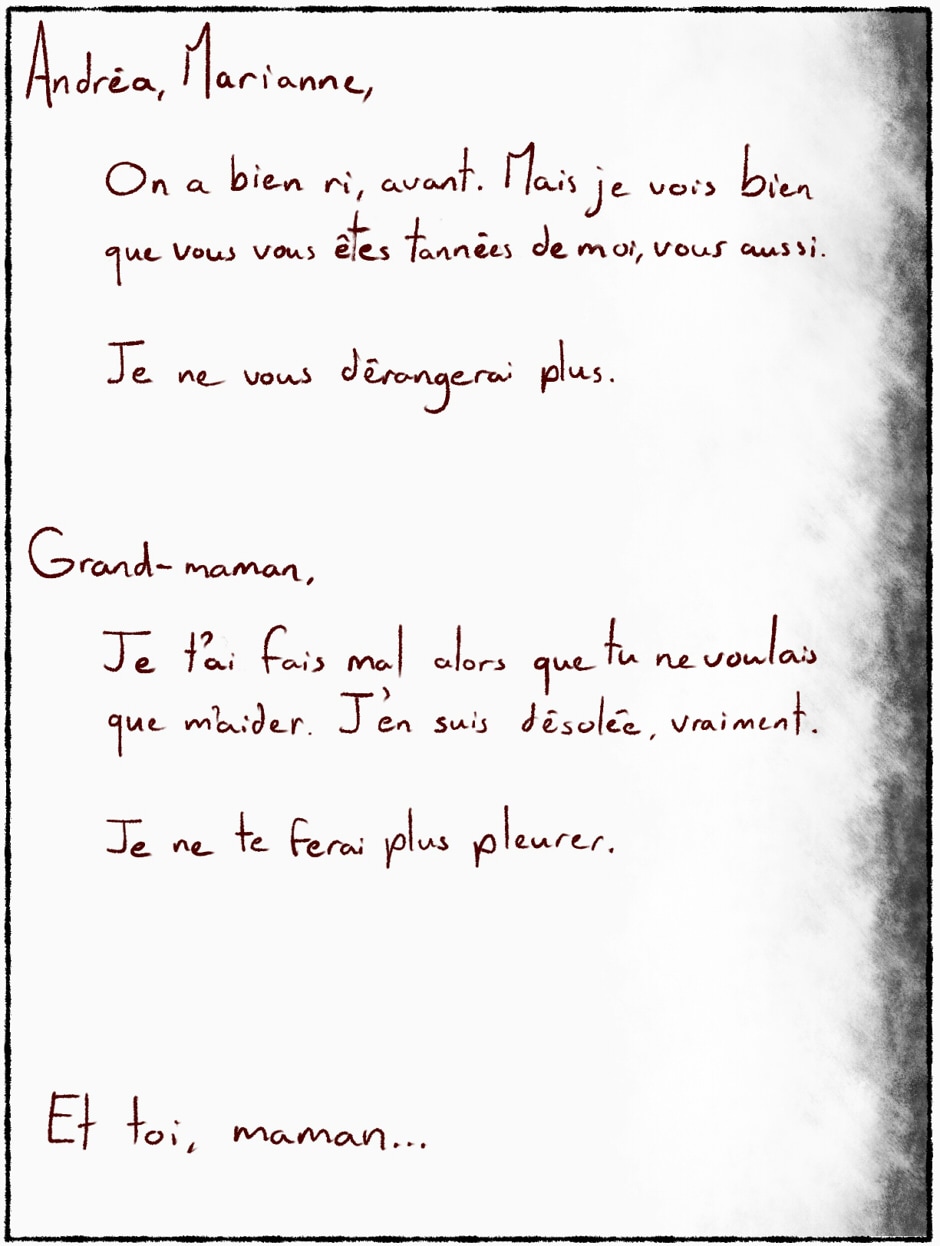 Andréa, Marianne,
On a bien ri, avant. Mais je vois bien
que vous vous êtes tannées de moi, vous aussi.
Je ne vous dérangerai plus.
Grand-maman,
Je t'ai fais mal alors que tu ne voulais
que m'aider. J'en suis désolée, vraiment.
Je ne te ferai plus pleurer.
Et toi, maman...